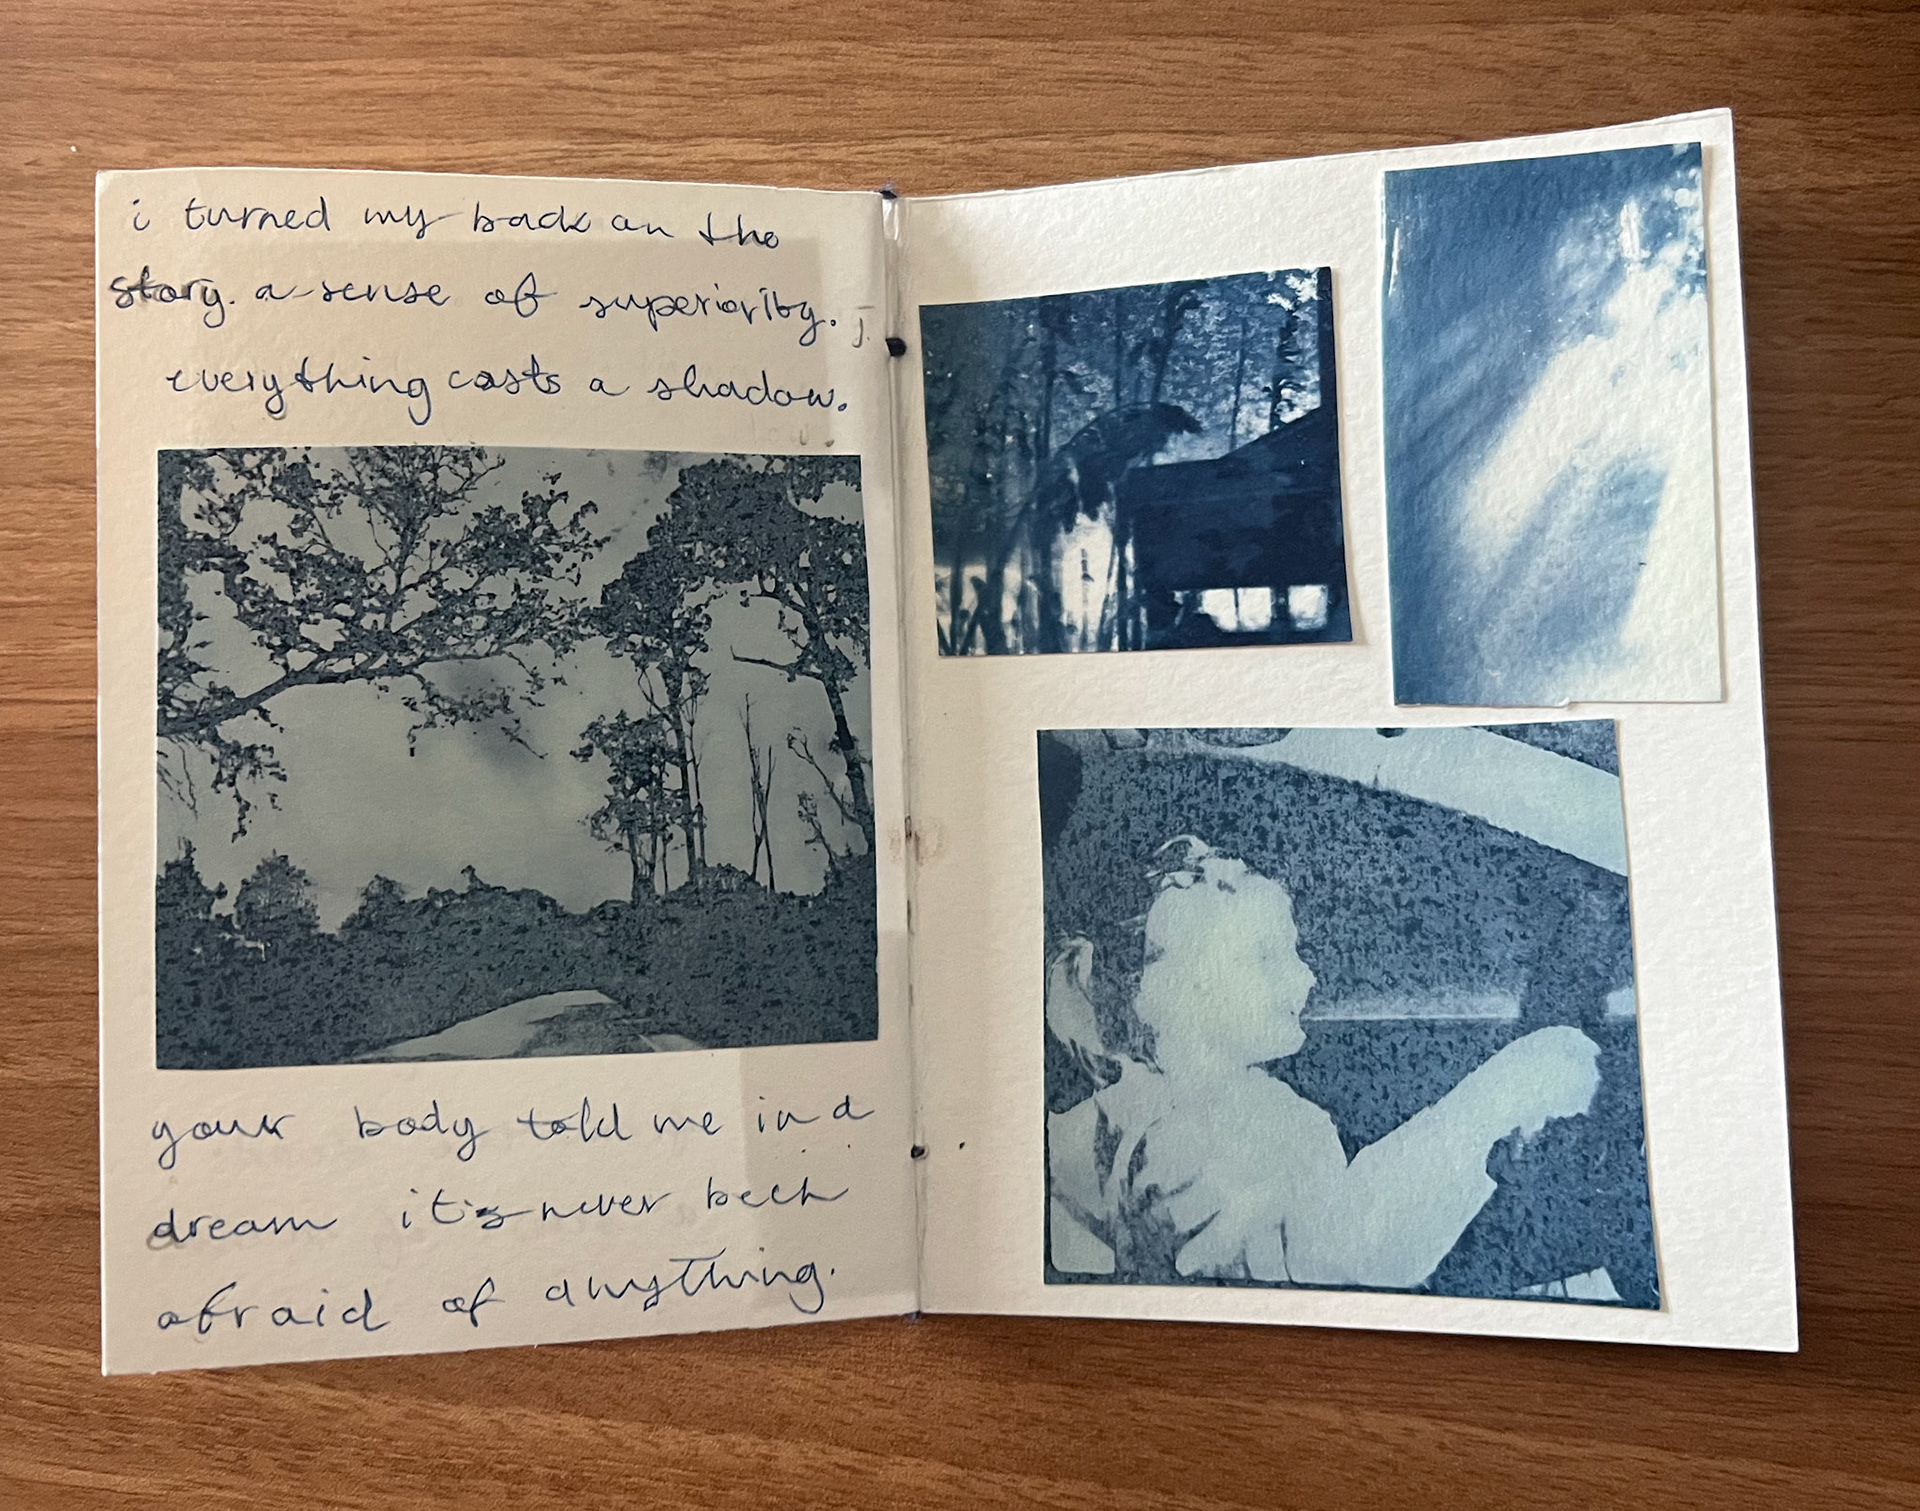 i turned my back on the
story. a sense of superiority.
everything casts a shadow.
your body told me in a
dream it's never been
afraid of anything.